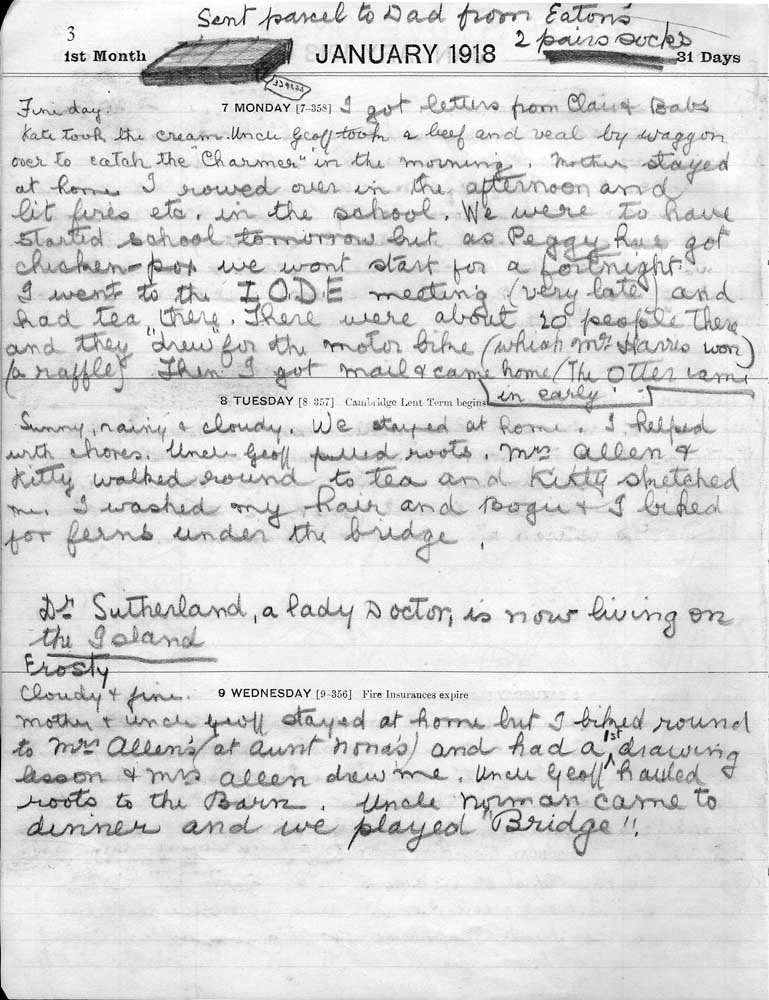 Sent parcel to Dad from Eaton's
3
2 pairs socks
1st Month
JANUARY 1918
31 Days
Fine day.
7 MONDAY [7-358]
I got letters from Claire & Babs
Kate took the cream. Uncle Geoff took a beef and veal by waggon
over to catch the "Charmer" in the morning. Mother stayed
at home. I rowed over in the afternoon and
lit fires etc. in the school. We were to have
started school tomorrow but as Peggy has got
chicken-pox we wont start for a fortnight.
I went to the I.O.D.E meeting (very late) and
had tea there. There were about 20 people there
and they "drew" for the motor bike (which Mr Harris won)
(a raffle) Then I got mail & came home (The Otter came
in early)
8 TUESDAY [8 357] Cambridge Lent Term begins
Sunny, rainy & cloudy. We stayed at home. I helped
with chores. Uncle Geoff pulled roots. Mrs Allen &
Kitty walked round to tea and Kitty sketched
me. I washed my hair and Bogie & I biked
for ferns under the bridge.
Dr Sutherland, a lady Doctor, is now living on
the Island
Frosty
Cloudy & fine.
9 WEDNESDAY [9-356] Fire Insurances expire
Mother & Uncle Geoff stayed at home but I biked round
to Mrs Allen's (at Aunt Nona's) and had a 1st drawing
lesson & Mrs Allen drew me. Uncle Geoff hauled
roots to the Barn. Uncle Norman came to
dinner and we played "Bridge"!!